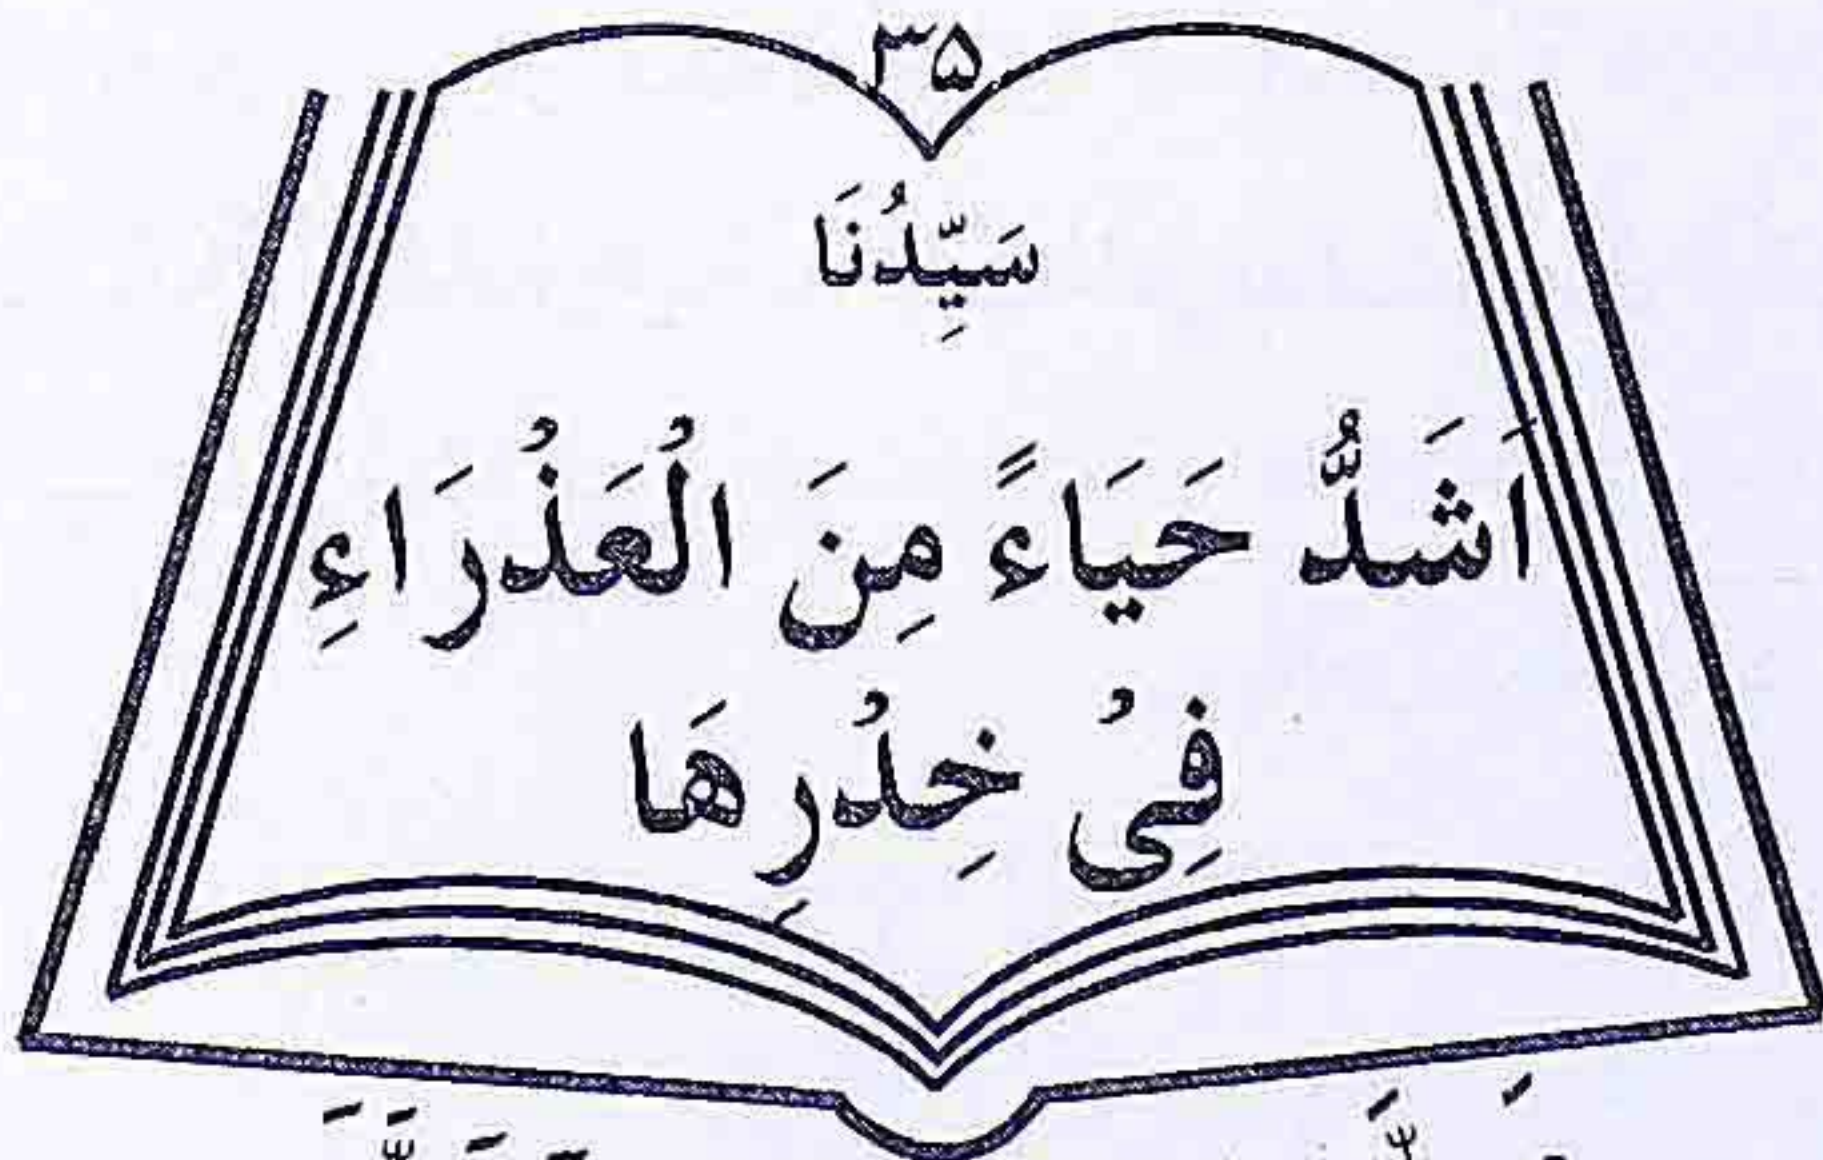 ۳۵
سَيِّدُنَا
اَشَدُّ حَيَاءً مِنَ الْعَذْرَاءِ
فِىْ خِدْرِهَا